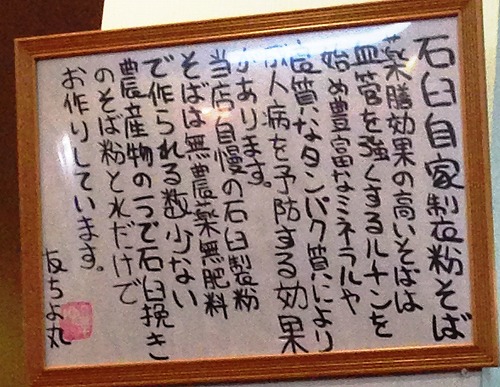 石臼自家製粉そば
薬膳効果の高いそばは
血管を強くするルチンを
始め豊富なミネラルや
良質なタンパク質により
人病を予防する効果
があります。
当店自慢の石臼製粉
そばは無農薬無肥料
で作られる数少ない
農産物の一つで石臼挽き
のそば粉と水だけで
お作りしています。
友ちよ丸